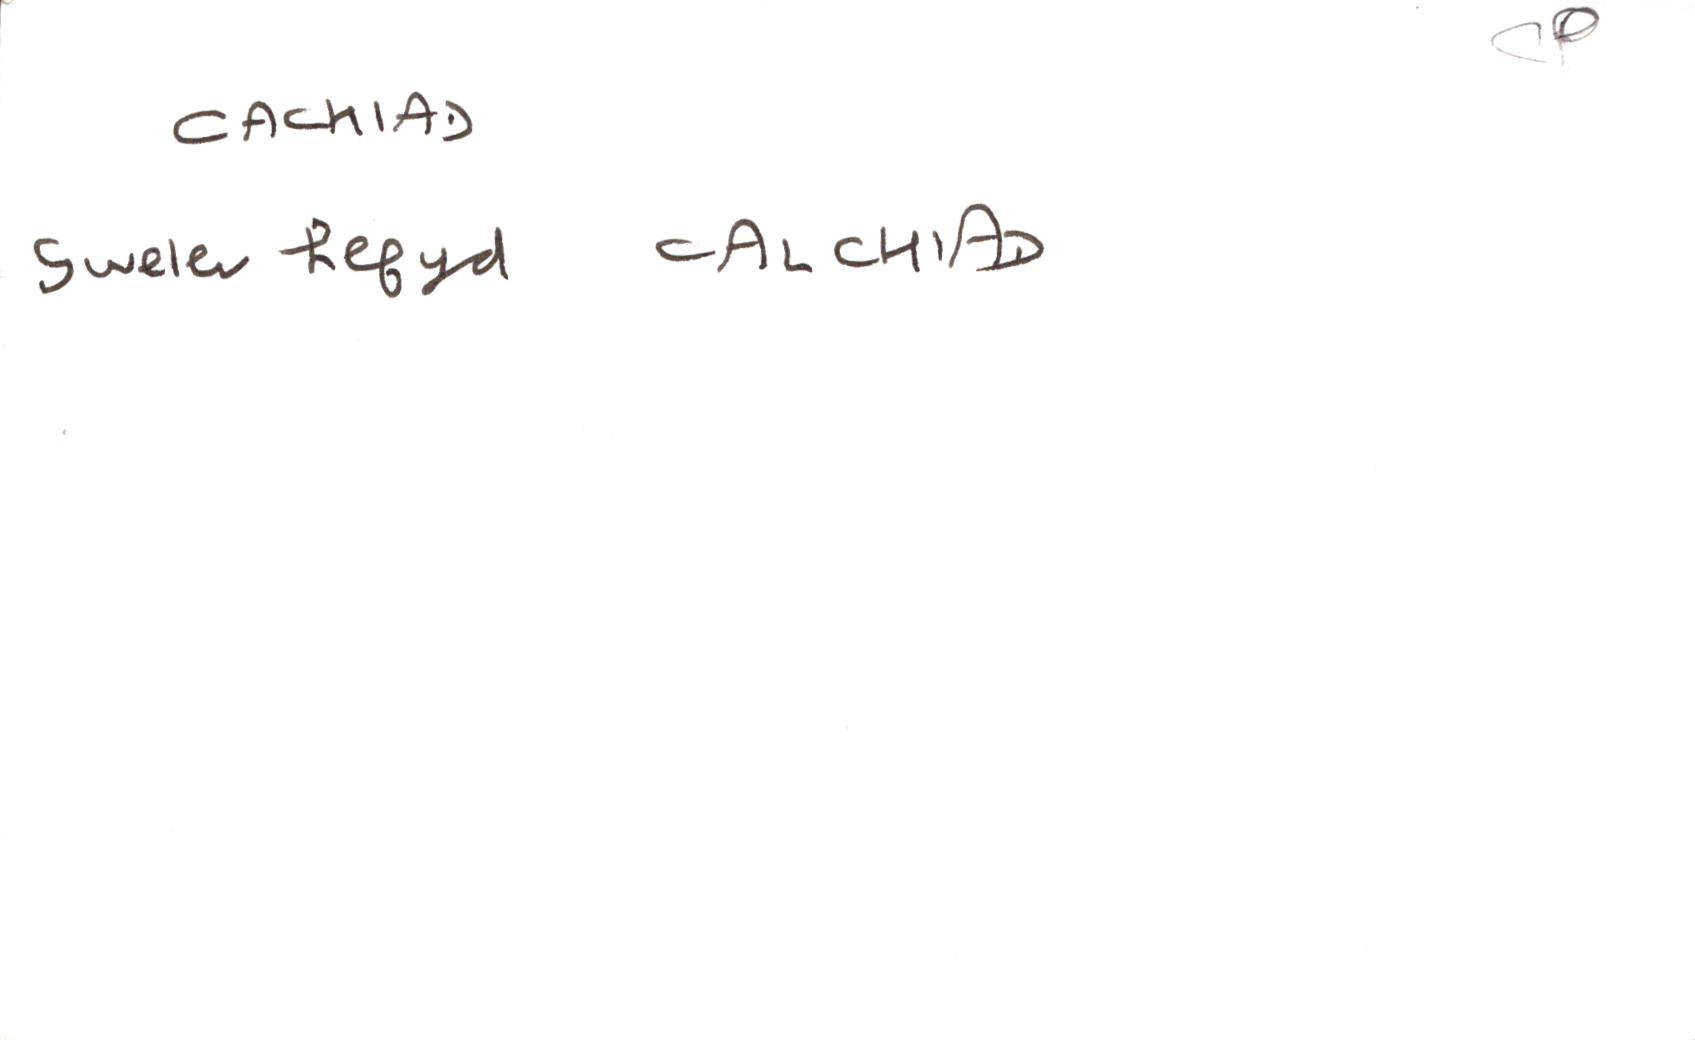 CP
CACHIAD
Sweler hefyd CALCHIAD